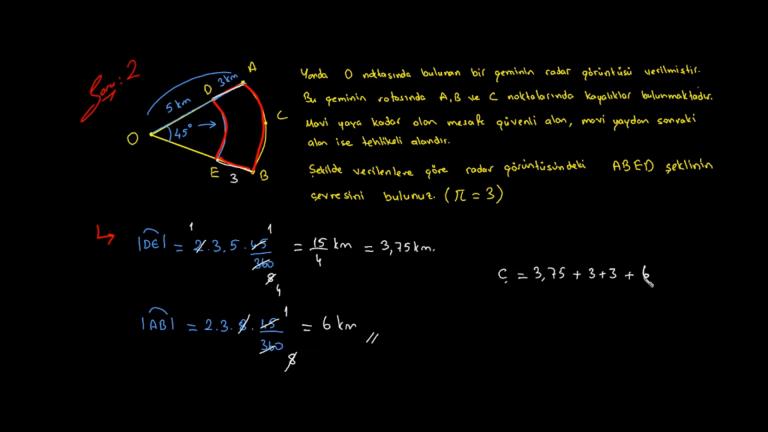 Soru: 2
Yanda O noktasında bulunan bir geminin radar görüntüsü verilmiştir.
Bu geminin rotasında A, B ve C noktalarında kayalıklar bulunmaktadır.
Mavi yaya kadar olan mesafe güvenli alan, mavi yaydan sonraki
alan ise tehlikeli alandır.
Şekilde verilenlere göre radar görüntüsündeki ABED şeklinin
çevresini bulunuz. (π = 3)
A
3 km
D
5 km
C
O
45° →
E
3
B
|DE| = 2.3.5. 45/360 = 15/4 km = 3,75 km.
1
1
8
4
Ç = 3,75 + 3 + 3 + 6
|AB| = 2.3.8. 45/360 = 6 km //
1
8